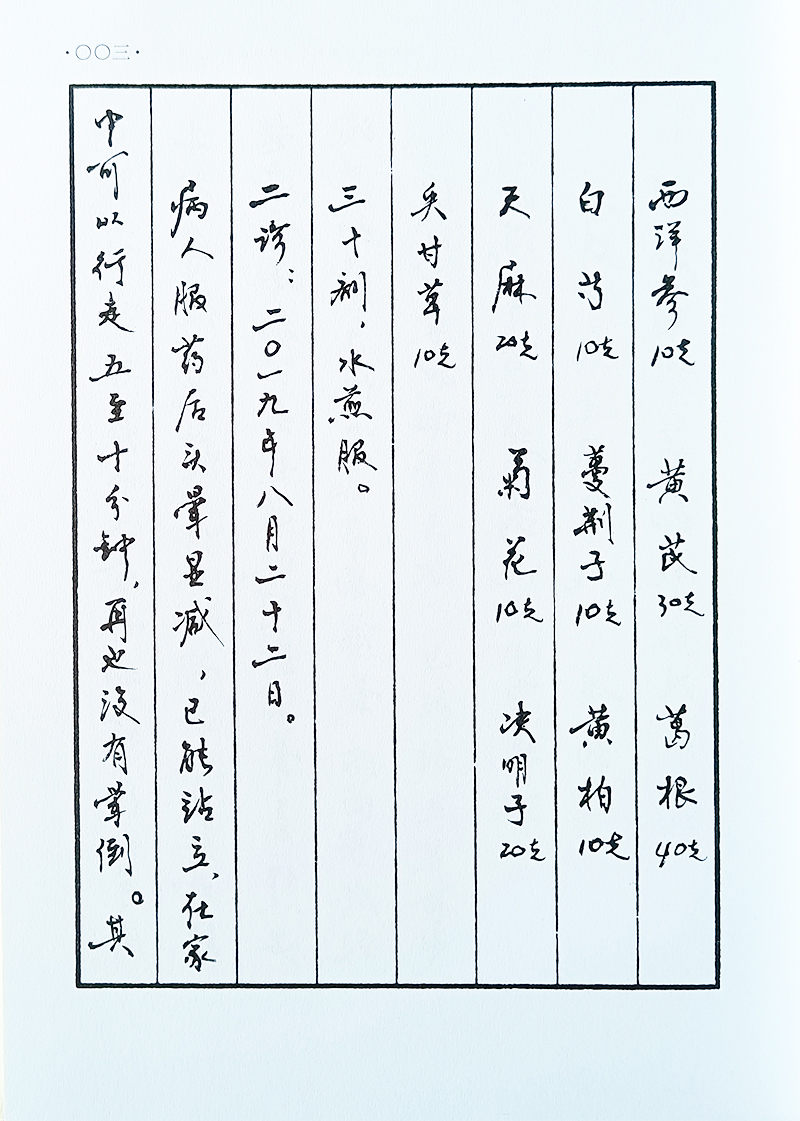 ·〇〇三·
西洋参10克 黄芪30克 葛根40克
白芍10克 蔓荆子10克 黄柏10克
天麻20克 菊花10克 决明子20克
炙甘草10克
三十剂，水煎服。
二诊：二〇一九年八月二十二日。
病人服药后头晕显减，已能站立、在家
中可以行走五至十分钟，再也没有晕倒。其